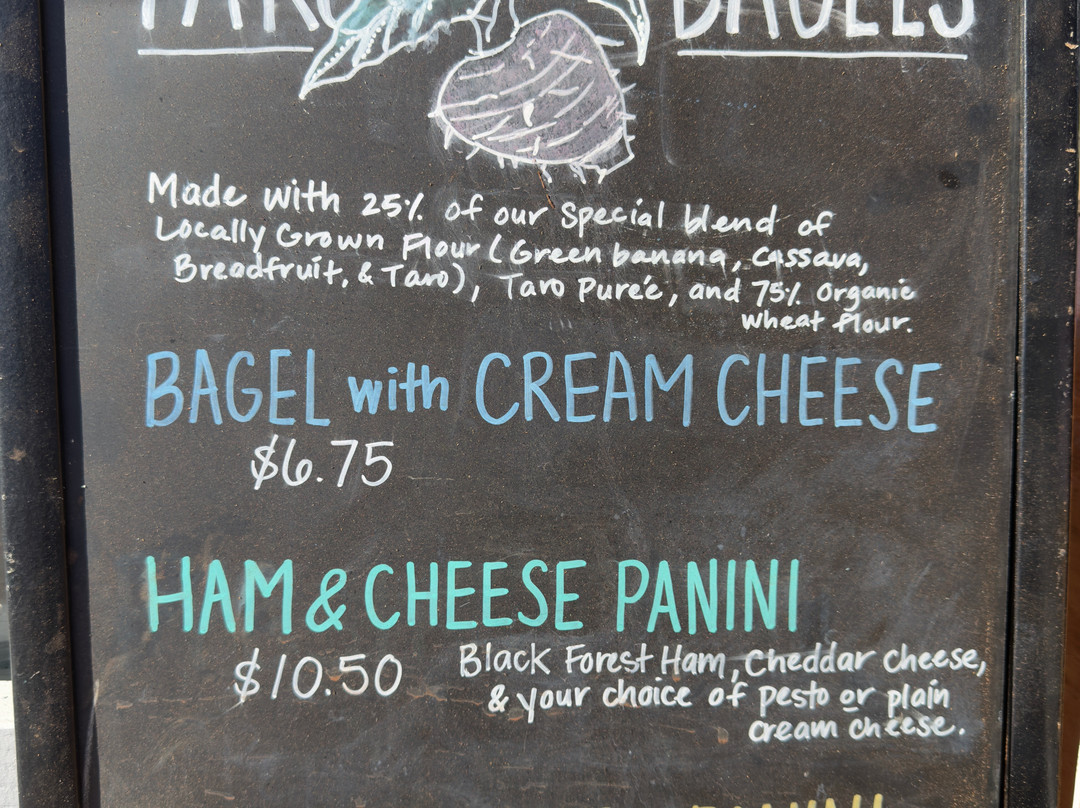 TARO BAGELS
Made with 25% of our special blend of
Locally Grown Flour (Green banana, cassava,
Breadfruit, & Taro), Taro Pureé, and 75% Organic
wheat flour.
BAGEL with CREAM CHEESE
$6.75
HAM & CHEESE PANINI
$10.50 Black Forest Ham, cheddar cheese,
& your choice of pesto or plain
cream cheese.